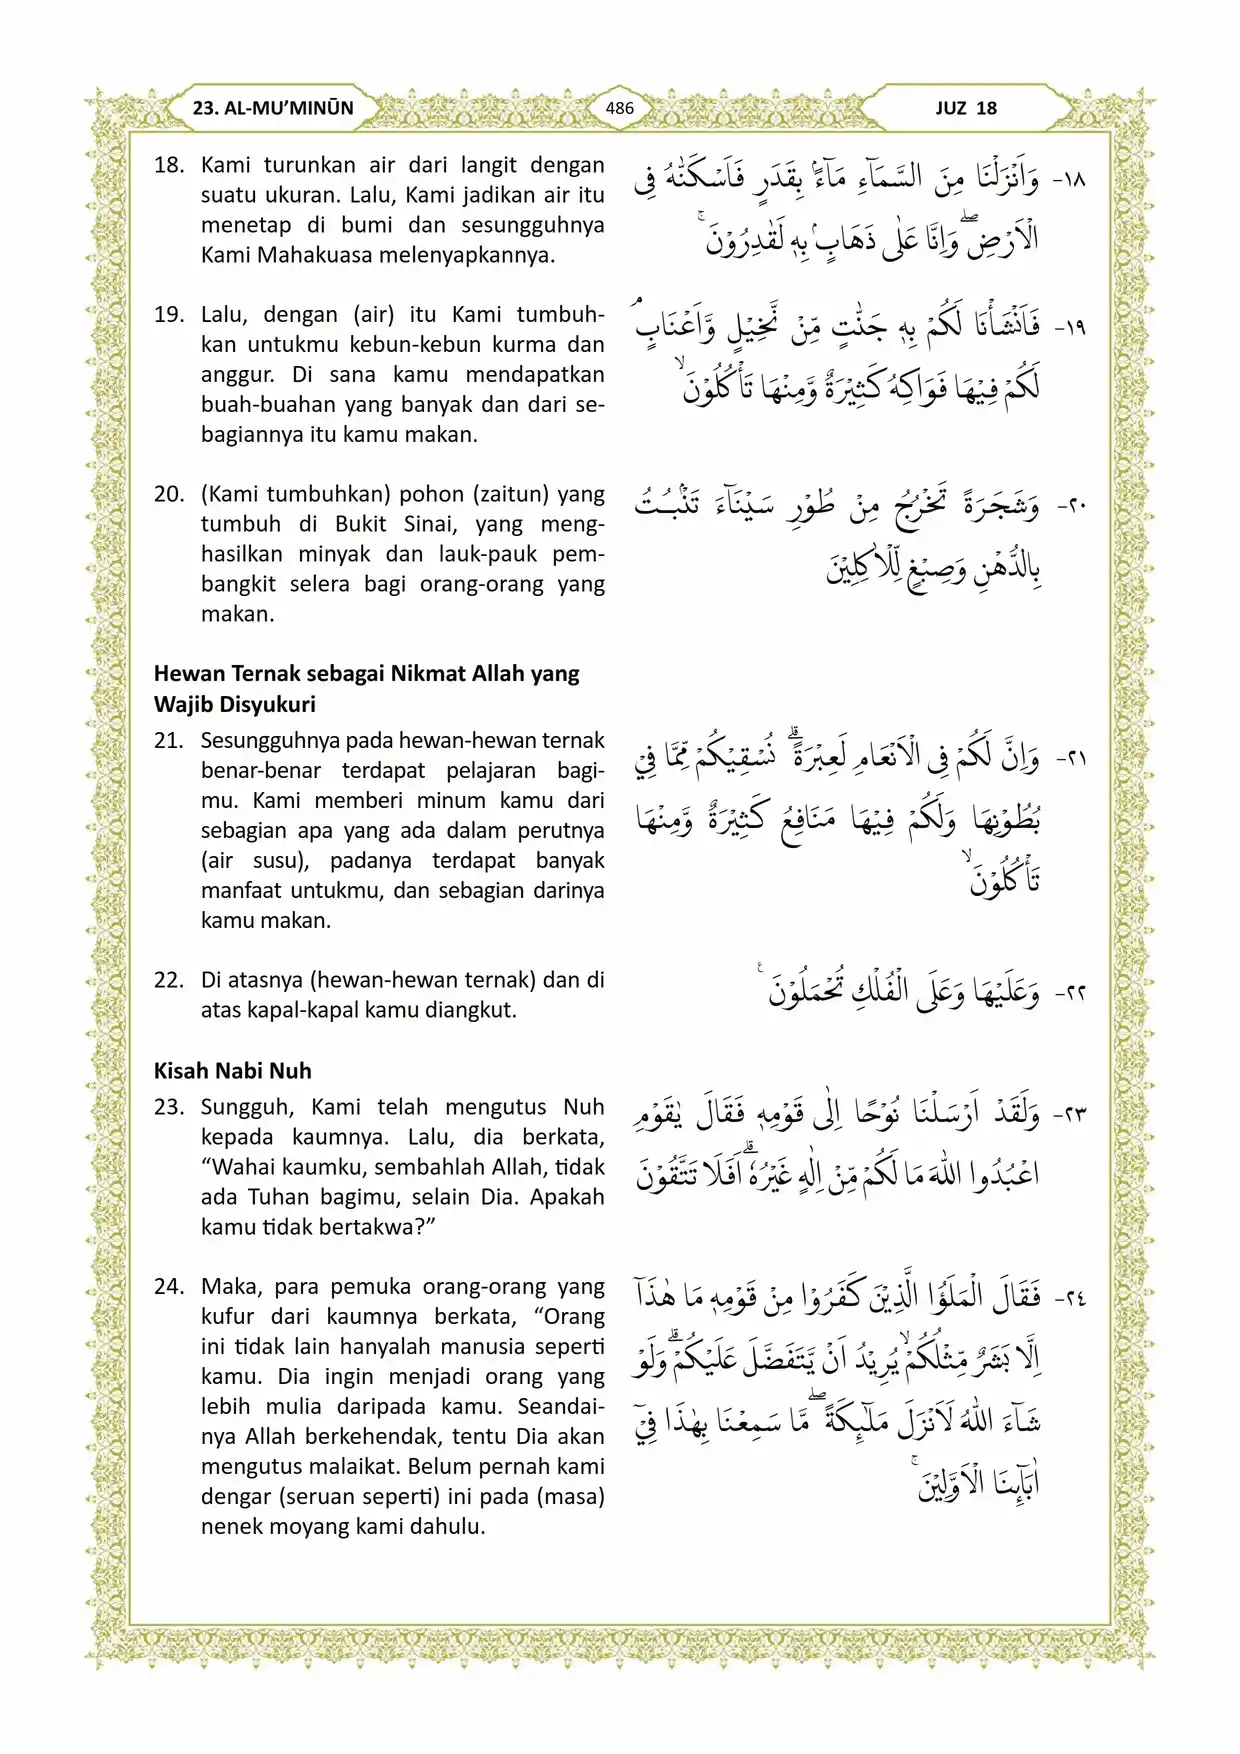 23. AL-MU’MINŪN
486
JUZ 18
18. Kami turunkan air dari langit dengan
suatu ukuran. Lalu, Kami jadikan air itu
menetap di bumi dan sesungguhnya
Kami Mahakuasa melenyapkannya.
١٨- وَاَنْزَلْنَا مِنَ السَّمَاۤءِ مَاۤءًۢ بِقَدَرٍ فَاَسْكَنّٰهُ فِى
الْاَرْضِۖ وَاِنَّا عَلٰى ذَهَابٍۢ بِهٖ لَقٰدِرُوْنَ ۚ
19. Lalu, dengan (air) itu Kami tumbuh-
kan untukmu kebun-kebun kurma dan
anggur. Di sana kamu mendapatkan
buah-buahan yang banyak dan dari se-
bagiannya itu kamu makan.
١٩- فَاَنْشَأْنَا لَكُمْ بِهٖ جَنّٰتٍ مِّنْ نَّخِيْلٍ وَّاَعْنَابٍۘ
لَكُمْ فِيْهَا فَوَاكِهُ كَثِيْرَةٌ وَّمِنْهَا تَأْكُلُوْنَ ۙ
20. (Kami tumbuhkan) pohon (zaitun) yang
tumbuh di Bukit Sinai, yang meng-
hasilkan minyak dan lauk-pauk pem-
bangkit selera bagi orang-orang yang
makan.
٢٠- وَشَجَرَةً تَخْرُجُ مِنْ طُوْرِ سَيْنَاۤءَ تَنْۢبُتُ
بِالدُّهْنِ وَصِبْغٍ لِّلْاٰكِلِيْنَ
Hewan Ternak sebagai Nikmat Allah yang
Wajib Disyukuri
21. Sesungguhnya pada hewan-hewan ternak
benar-benar terdapat pelajaran bagi-
mu. Kami memberi minum kamu dari
sebagian apa yang ada dalam perutnya
(air susu), padanya terdapat banyak
manfaat untukmu, dan sebagian darinya
kamu makan.
٢١- وَاِنَّ لَكُمْ فِى الْاَنْعَامِ لَعِبْرَةًۗ نُسْقِيْكُمْ مِّمَّا فِيْ
بُطُوْنِهَا وَلَكُمْ فِيْهَا مَنَافِعُ كَثِيْرَةٌ وَّمِنْهَا
تَأْكُلُوْنَ ۙ
22. Di atasnya (hewan-hewan ternak) dan di
atas kapal-kapal kamu diangkut.
٢٢- وَعَلَيْهَا وَعَلَى الْفُلْكِ تُحْمَلُوْنَ ࣖ
Kisah Nabi Nuh
23. Sungguh, Kami telah mengutus Nuh
kepada kaumnya. Lalu, dia berkata,
“Wahai kaumku, sembahlah Allah, tidak
ada Tuhan bagimu, selain Dia. Apakah
kamu tidak bertakwa?”
٢٣- وَلَقَدْ اَرْسَلْنَا نُوْحًا اِلٰى قَوْمِهٖ فَقَالَ يٰقَوْمِ
اعْبُدُوا اللّٰهَ مَا لَكُمْ مِّنْ اِلٰهٍ غَيْرُهٗۗ اَفَلَا تَتَّقُوْنَ
24. Maka, para pemuka orang-orang yang
kufur dari kaumnya berkata, “Orang
ini tidak lain hanyalah manusia seperti
kamu. Dia ingin menjadi orang yang
lebih mulia daripada kamu. Seandai-
nya Allah berkehendak, tentu Dia akan
mengutus malaikat. Belum pernah kami
dengar (seruan seperti) ini pada (masa)
nenek moyang kami dahulu.
٢٤- فَقَالَ الْمَلَؤُا الَّذِيْنَ كَفَرُوْا مِنْ قَوْمِهٖ مَا هٰذَآ
اِلَّا بَشَرٌ مِّثْلُكُمْۙ يُرِيْدُ اَنْ يَّتَفَضَّلَ عَلَيْكُمْۗ وَلَوْ
شَاۤءَ اللّٰهُ لَاَنْزَلَ مَلٰۤىِٕكَةًۖ مَّا سَمِعْنَا بِهٰذَا فِيْٓ
اٰبَاۤىِٕنَا الْاَوَّلِيْنَ ۚ